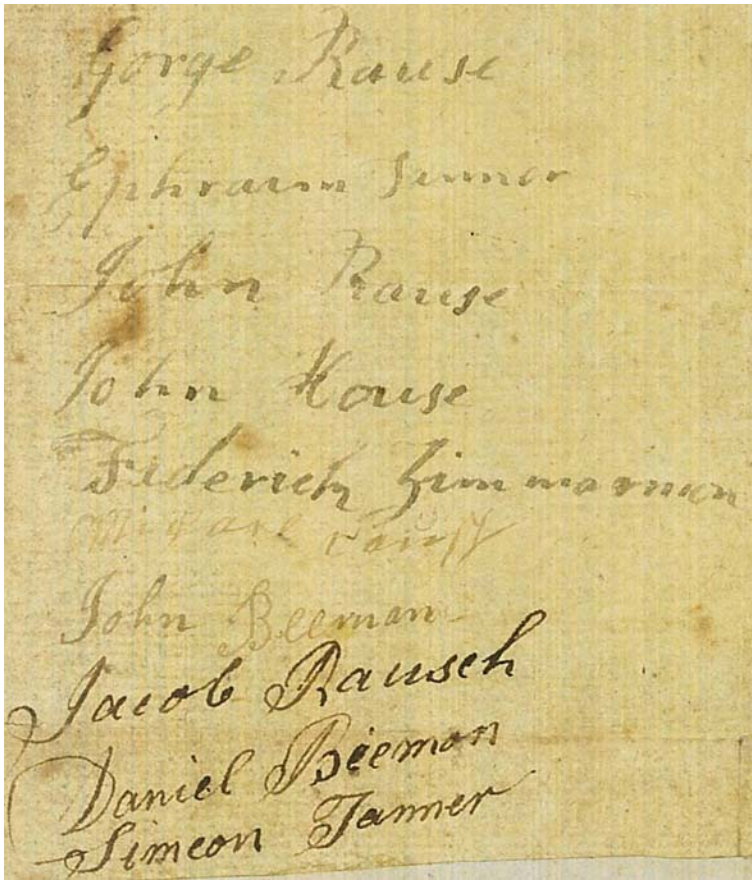 Gorge Rause
Ephraim
John Rause
John House
Fiderich Zimmarman
Michael Faust
John Beeman
Jacob Rausch
Daniel Bieman
Simeon Tanner